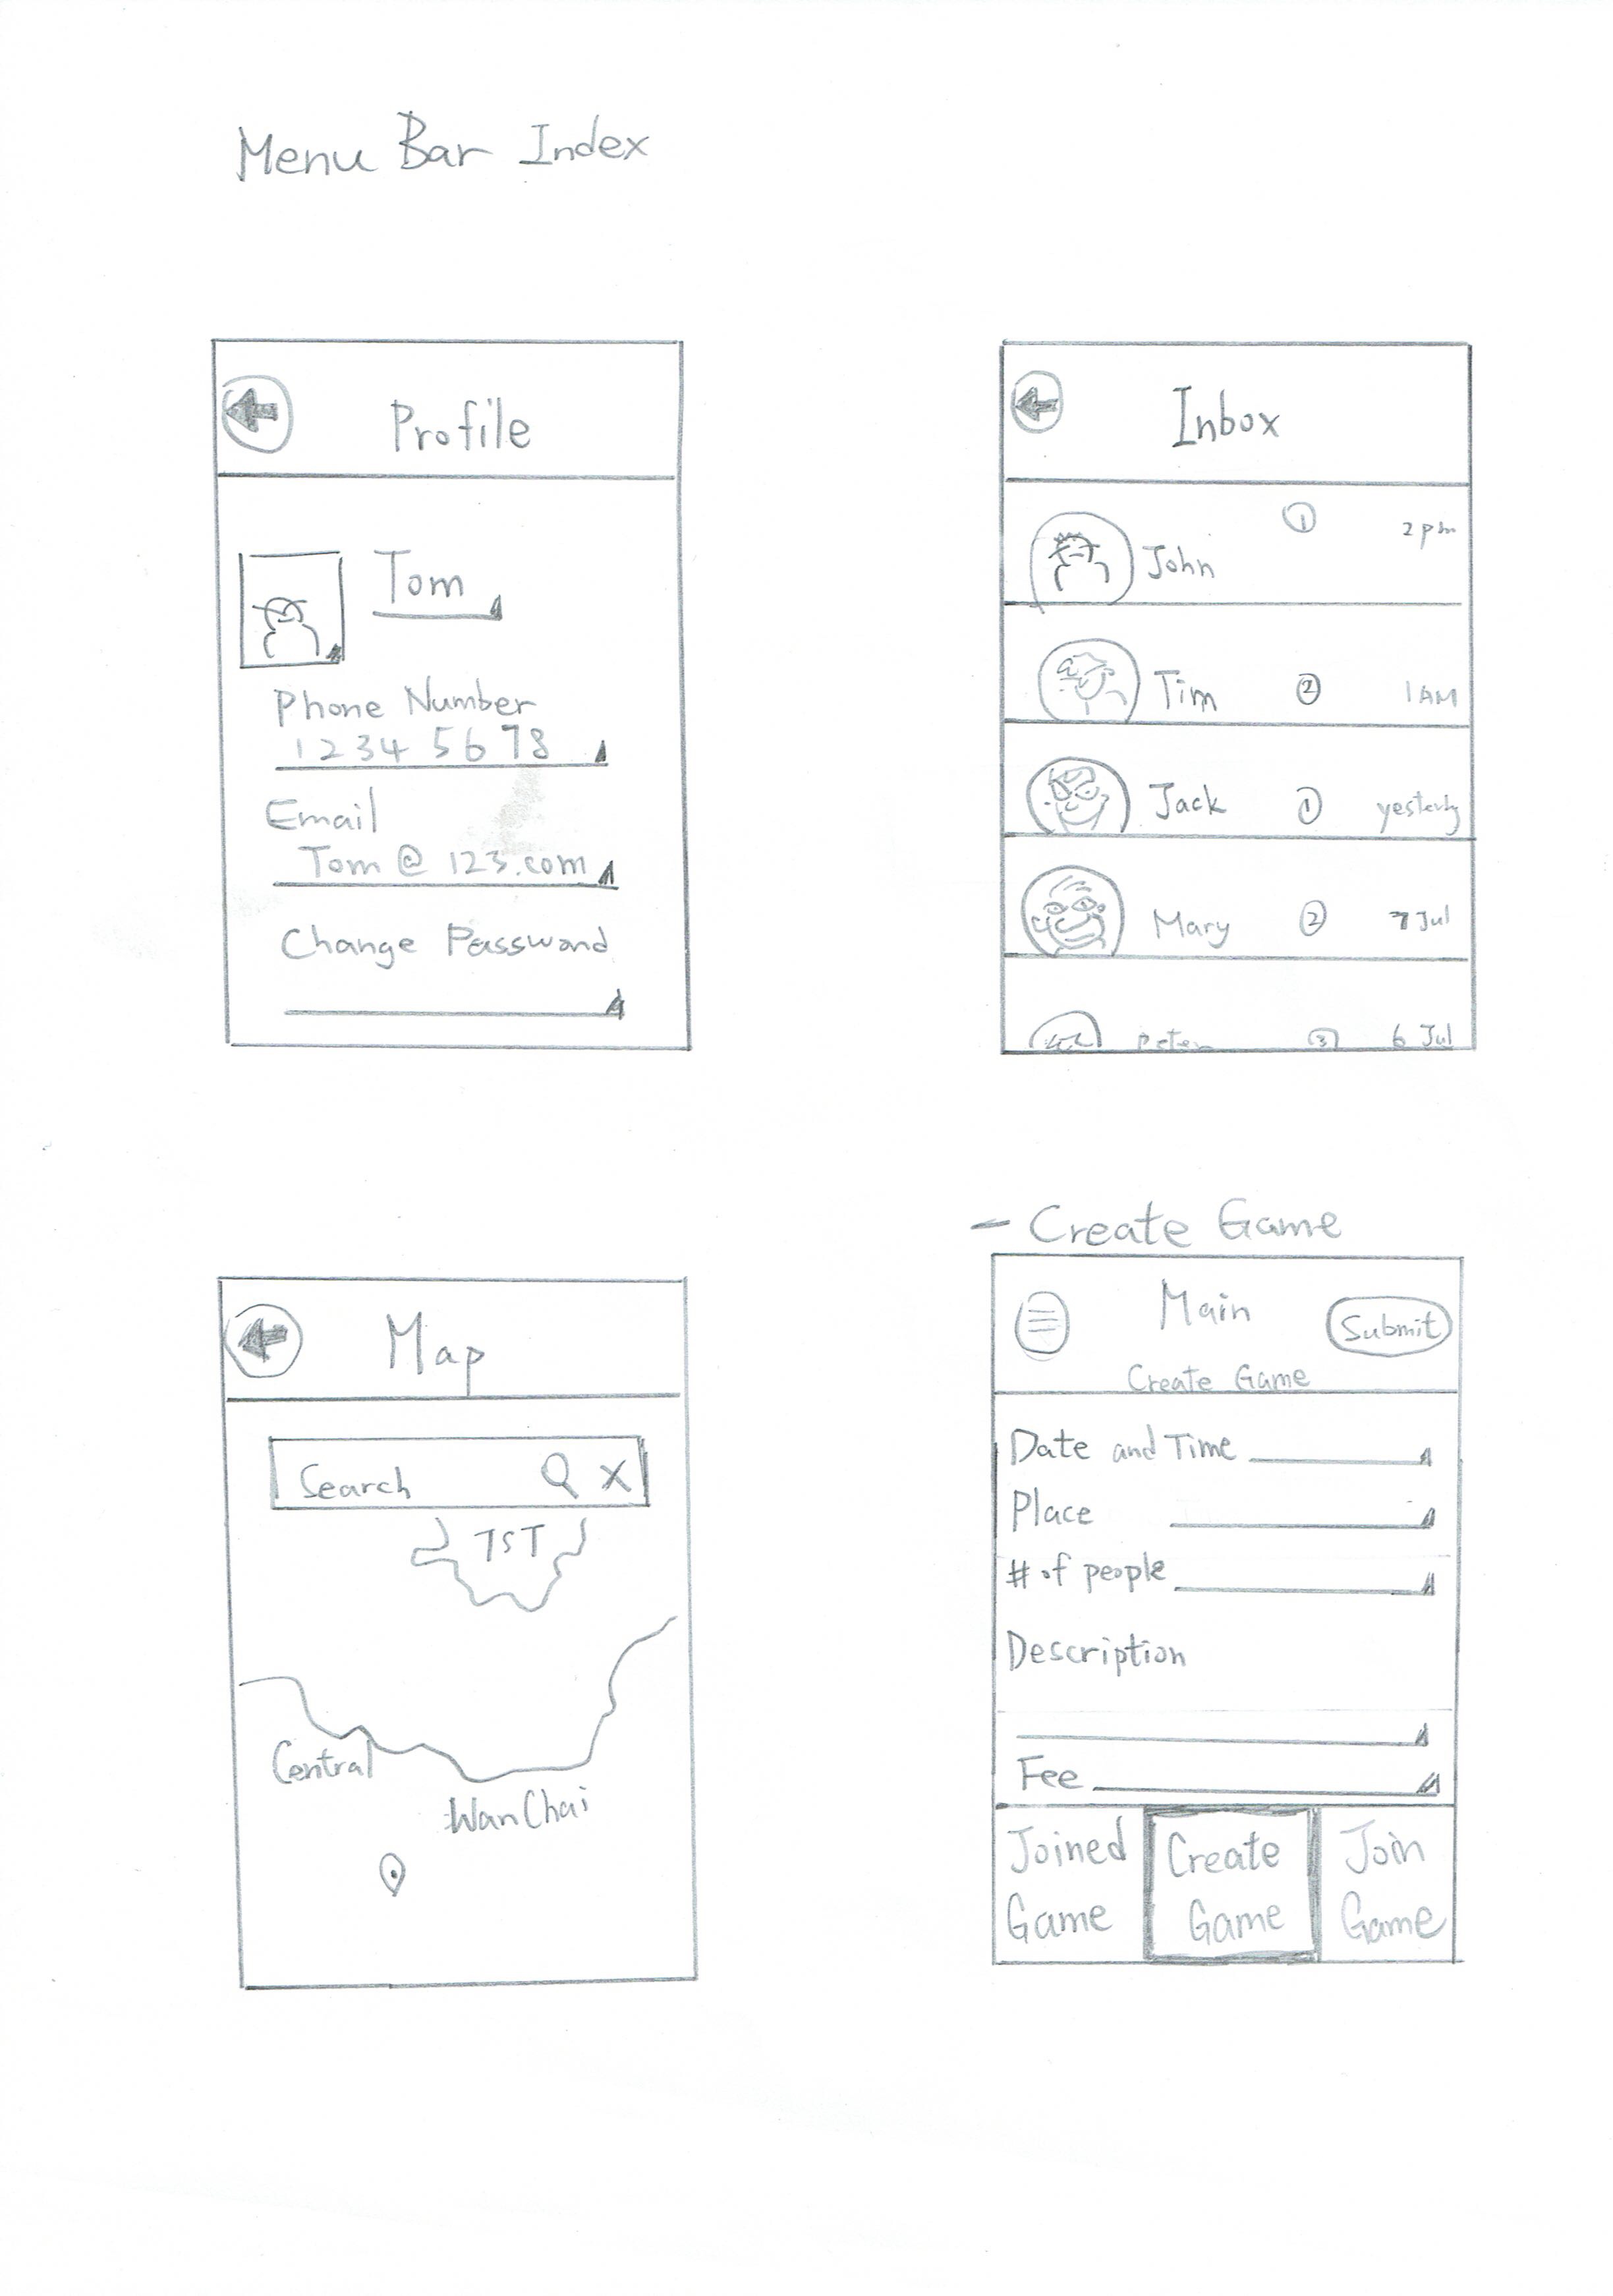 Menu Bar Index
Profile
Tom
Phone Number
1 2 3 4 5 6 7 8
Email
Tom @ 123.com
Change Password
Inbox
John 1 2 pm
Tim 2 1 AM
Jack 1 yesterday
Mary 2 7 Jul
Peter 3 6 Jul
Map
Search
TST
Central
Wan Chai
- Create Game
Main
Submit
Create Game
Date and Time
Place
# of people
Description
Fee
Joined Game
Create Game
Join Game